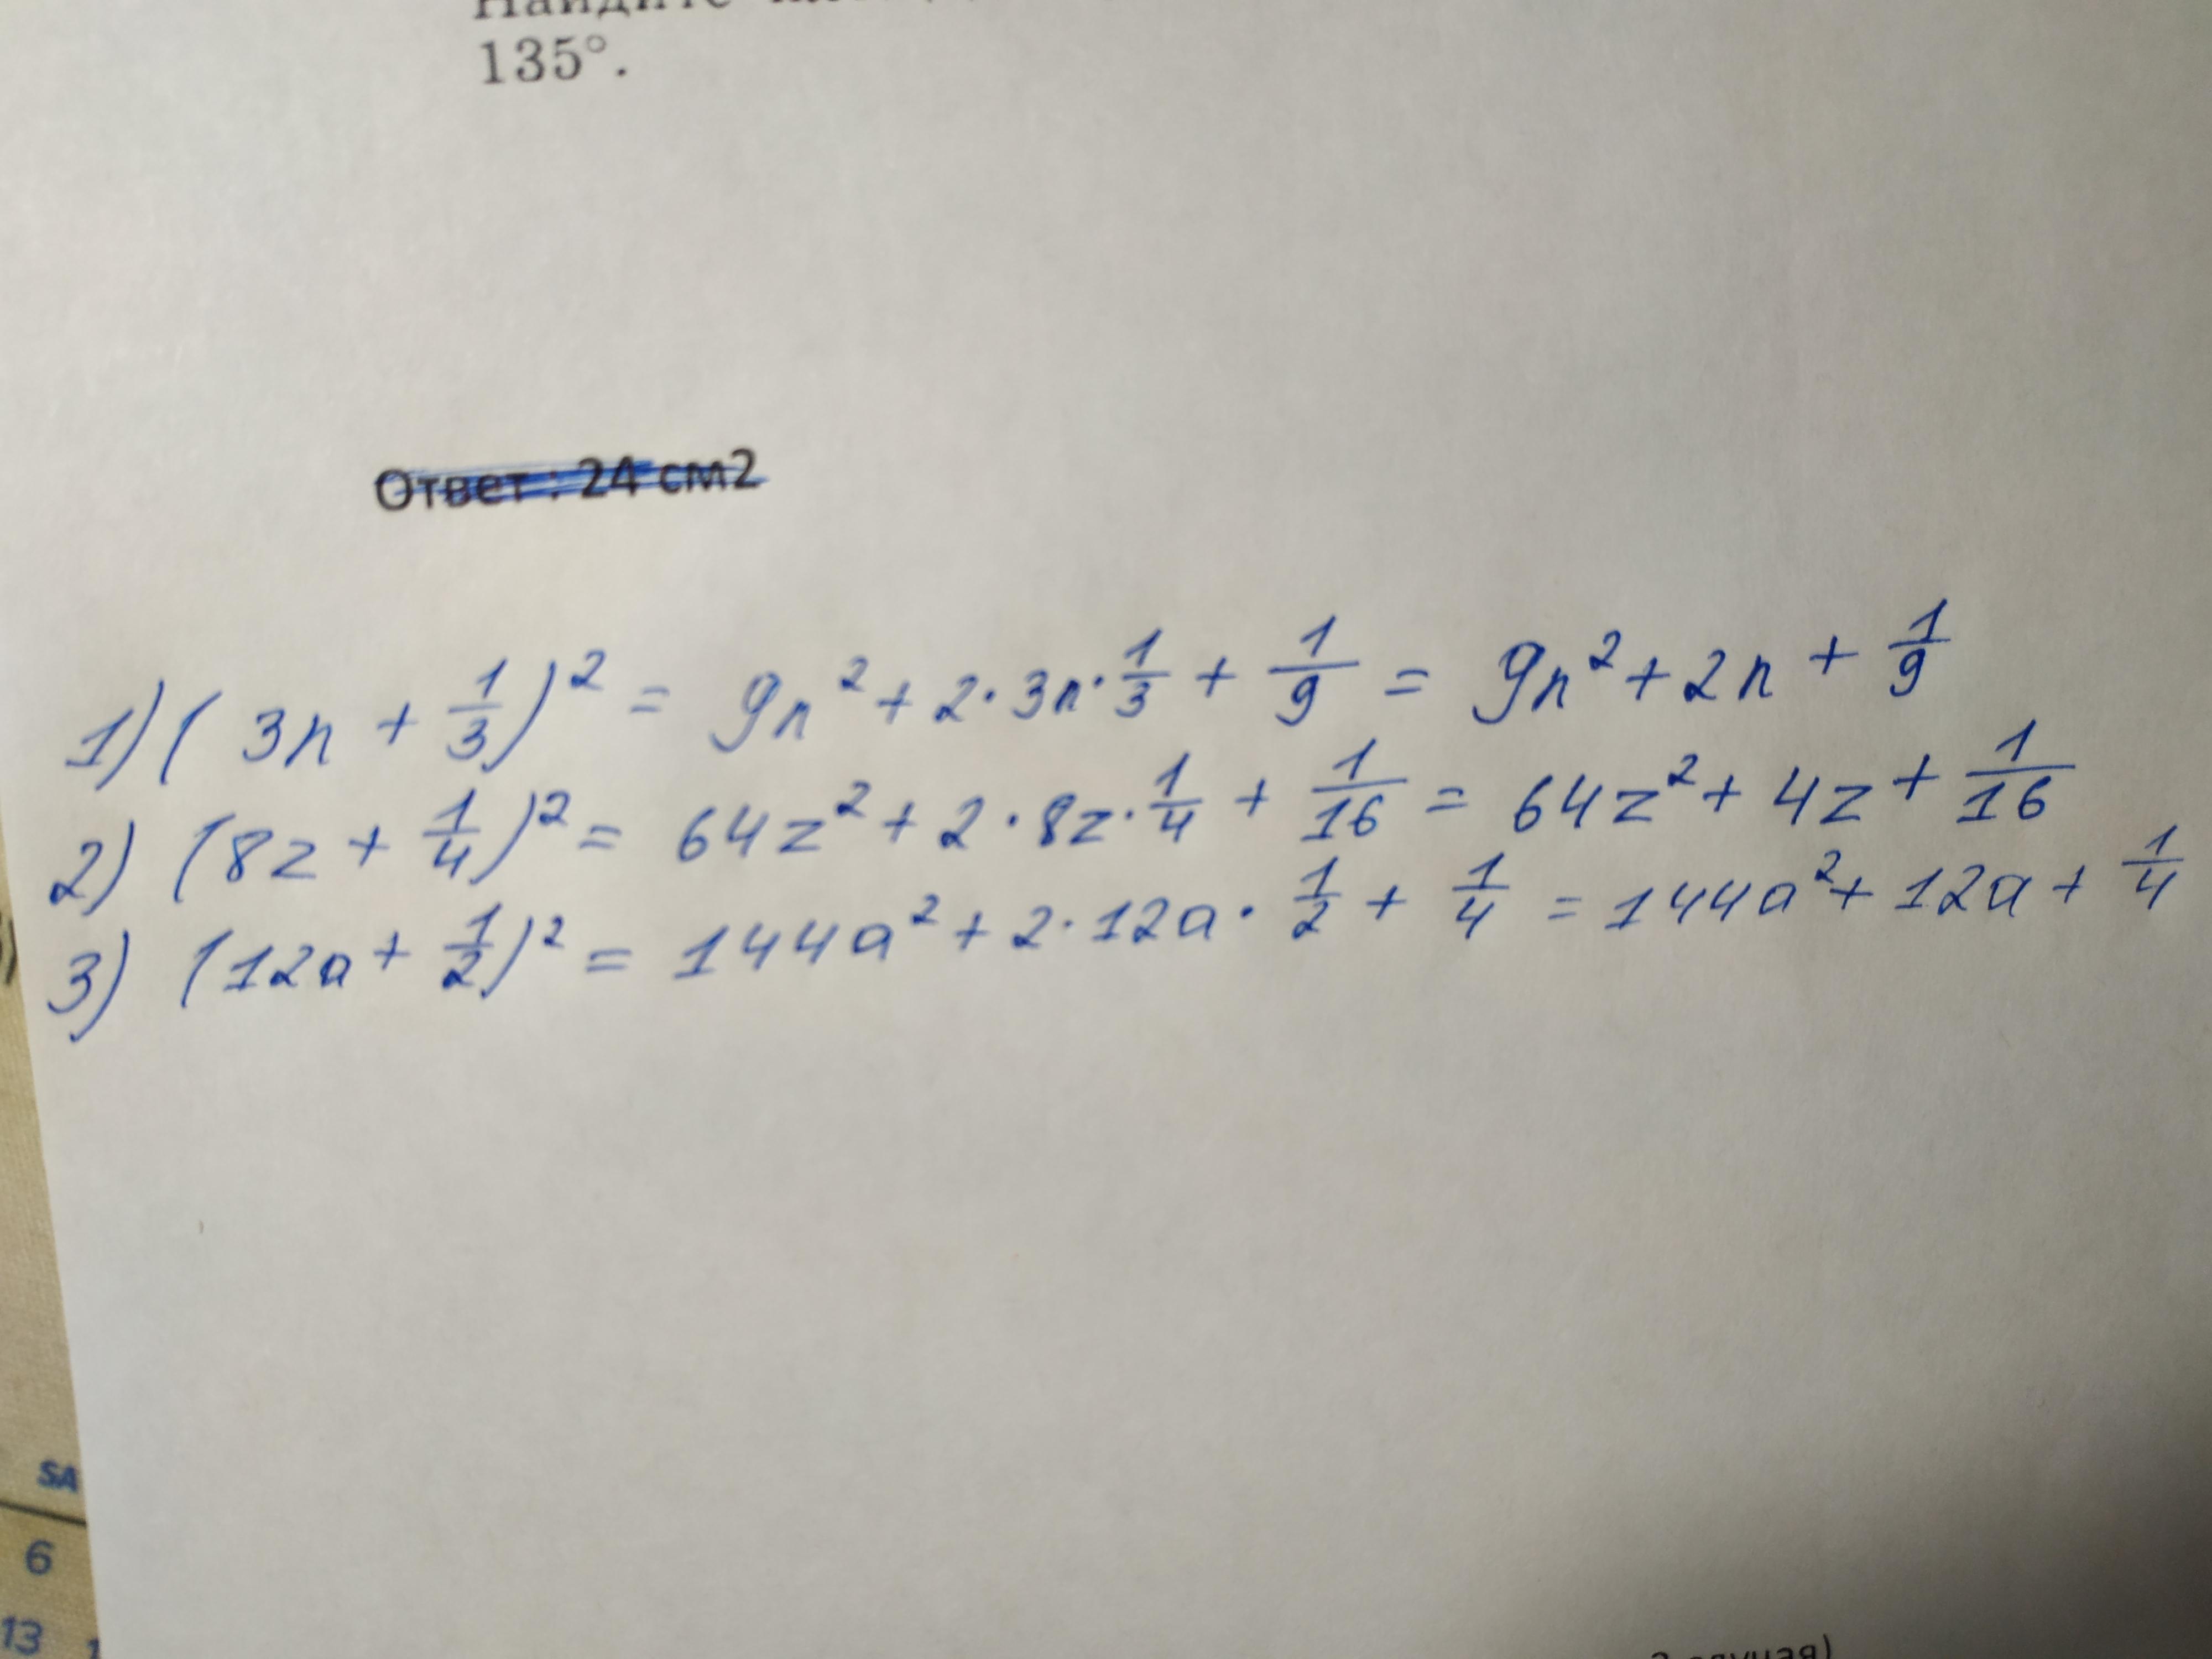 Найдите
135°.
Ответ : 24 см2
1) (3n + 1/3)² = 9n² + 2·3n·1/3 + 1/9 = 9n² + 2n + 1/9
2) (8z + 1/4)² = 64z² + 2·8z·1/4 + 1/16 = 64z² + 4z + 1/16
3) (12a + 1/2)² = 144a² + 2·12a·1/2 + 1/4 = 144a² + 12a + 1/4
SA
6
13 1